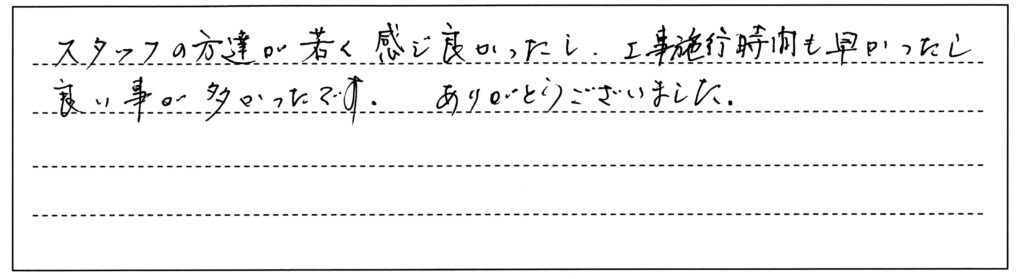 スタッフの方達が若く感じ良かったし、工事施行時間も早かったし
良い事が多かったです。 ありがとうございました。